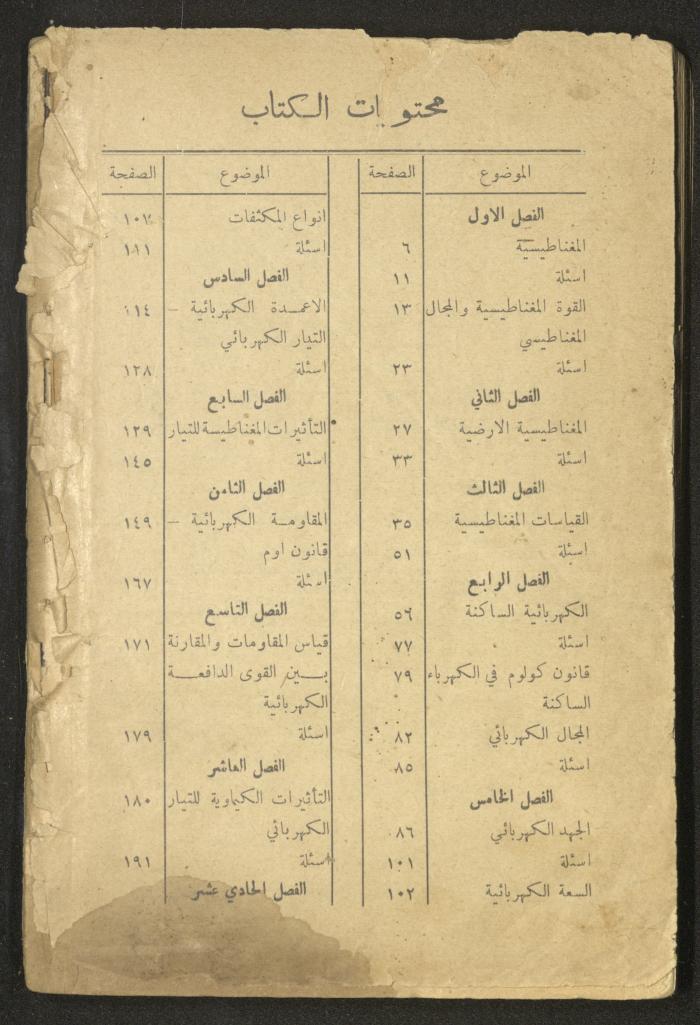 محتويات الكتاب
الموضوع الصفحة
الفصل الاول
المغناطيسية ٦
اسئلة ١١
القوة المغناطيسية والمجال ١٣
المغناطيسي
اسئلة ٢٣
الفصل الثاني
المغناطيسية الارضية ٢٧
اسئلة ٣٣
الفصل الثالث
القياسات المغناطيسية ٣٥
اسئلة ٥١
الفصل الرابع
الكهربائية الساكنة ٥٦
اسئلة ٧٧
قانون كولوم في الكهرباء ٧٩
الساكنة
المجال الكهربائي ٨٢
اسئلة ٨٥
الفصل الخامس
الجهد الكهربائي ٨٦
اسئلة ١٠١
السعة الكهربائية ١٠٢
الموضوع الصفحة
انواع المكثفات ١٠٧
اسئلة ١١١
الفصل السادس
الاعمدة الكهربائية – ١١٤
التيار الكهربائي
اسئلة ١٢٨
الفصل السابع
التأثيرات المغناطيسة للتيار ١٢٩
اسئلة ١٤٥
الفصل الثامن
المقاومة الكهربائية – ١٤٩
قانون اوم
اسئلة ١٦٧
الفصل التاسع
قياس المقاومات والمقارنة ١٧١
بين القوى الدافعة
الكهربائية
اسئلة ١٧٩
الفصل العاشر
التأثيرات الكيماوية للتيار ١٨٠
الكهربائي
اسئلة ١٩١
الفصل الحادي عشر